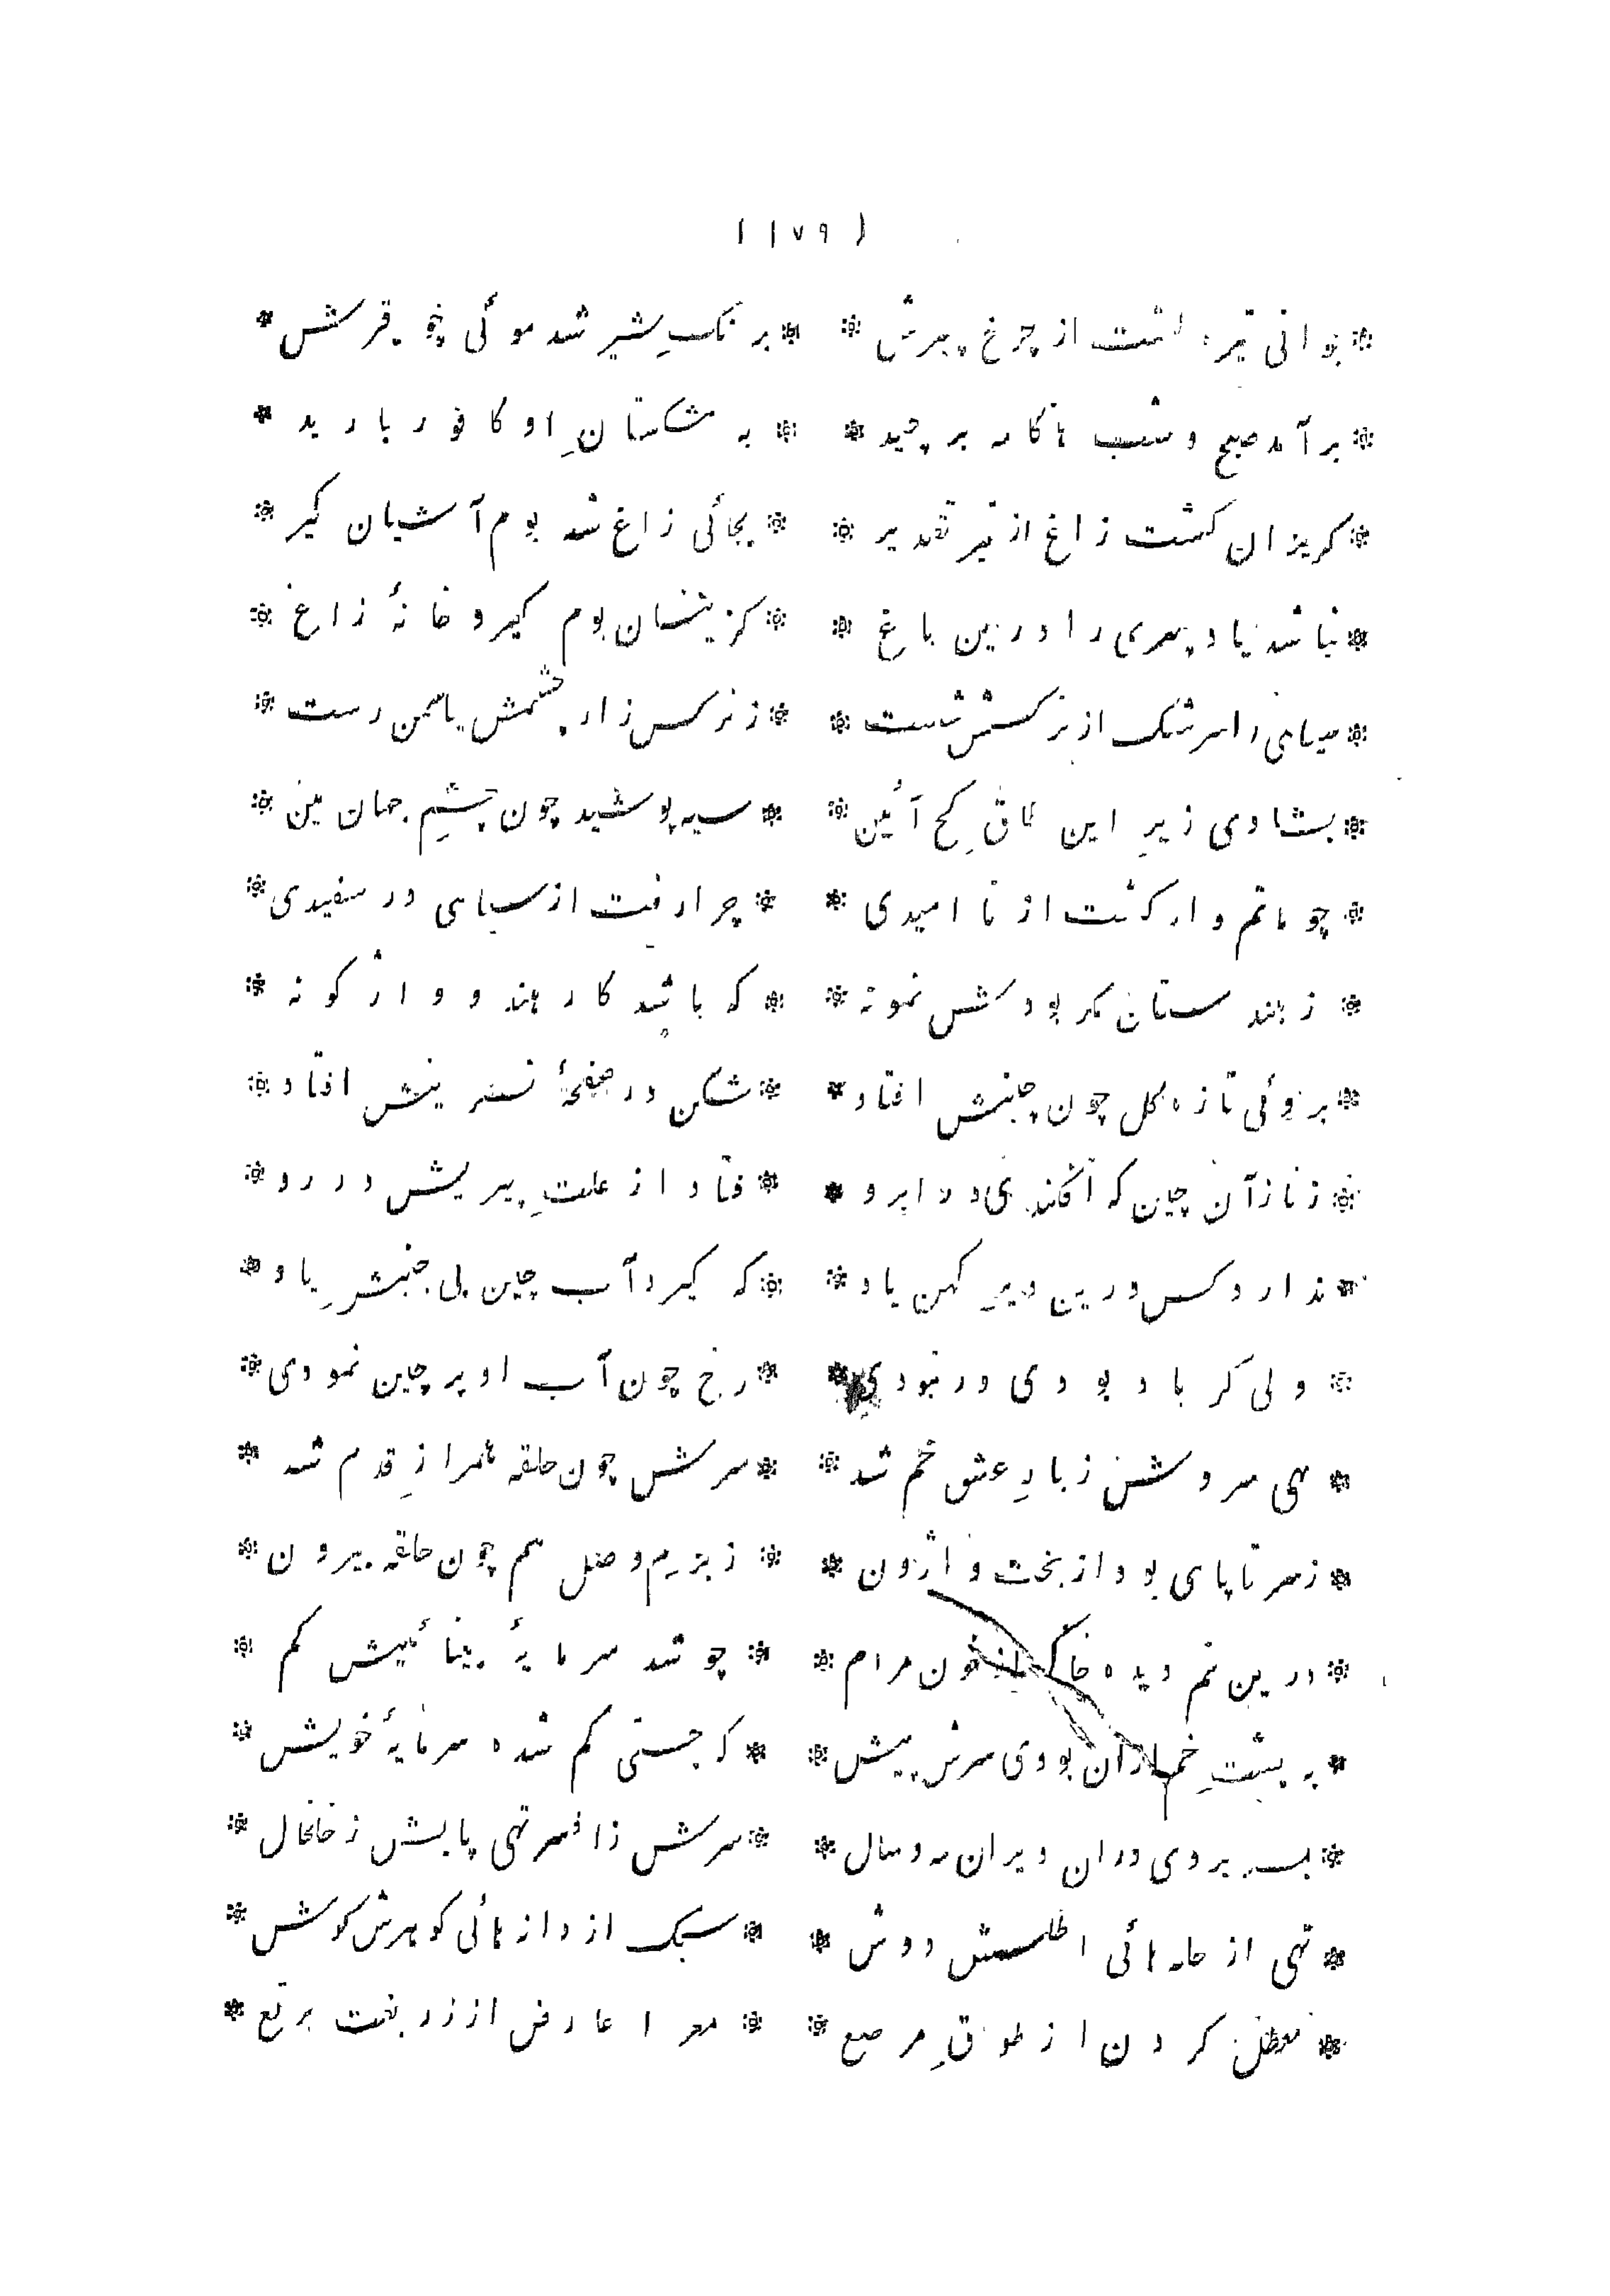 ( ١٧٩ )
* جوانی تیره گشت از چرخ پیرش * * برنکِ شیر شد موئی چو قیرش *
* برآمد صبح و شب هنکامه برچید * * به مشکستانِ او کافور بارید *
* کریزان کشت زاغ از تیر تقدیر * * بجائی زاغ شد بوم آشیان کیر *
* نباشد یاد پیری را درین باغ * * کزینسان بوم کیرد خانهٔ زاغ *
* سیاهی را سرشک از نرکسش شست * * ز نرکس زار چشمش یاسمن رست *
* بشادی زیرِ این طاقِ کج آئین * * سیه پوشید چون چشمِ جهان بین *
* چو ماتم دار کشت از نا امیدی * * چرا رفت از سیاهی در سفیدی *
* ز هندستان مکر بودش نمونه * * که باشد کار هندو واژکونه *
* بروئی تازه کل چون چینش افتاد * * شکن در صفحهٔ نسرینش افتاد *
* ز ناز آن چین که افکندی در ابرو * * فتاد از علتِ پیریش در رو *
* ندارد کس درین دیرِ کهن یاد * * که کیرد آب چین بی جنبشِ باد *
* ولی کر باد بودی ور نبودی * * رخ چون آب او پر چین نمودی *
* سهی سروشش ز بادِ عشق خم شد * * سرش چون حلقه همراز قدم شد *
* ز سر تا پای بود از بخت واژون * * ز بزمِ وصل هم چون حلقه بیرون *
* درین نم دیده خاک از خون مردم * * چو شد سرمایهٔ بینائیش کم *
* به پشتِ خم ازان بودی سرش پیش * * که جستی کم شده سرمایهٔ خویش *
* بسر بردی دران ویران مه و سال * * سرش ز افسر تهی پایش ز خلخال *
* تهی از حله هائی اطلسش دوش * * سبک از دانهائی کوهرش کوش *
* معطل کردن از طوقِ مرصع * * معرا عارض از زربفت برقع *